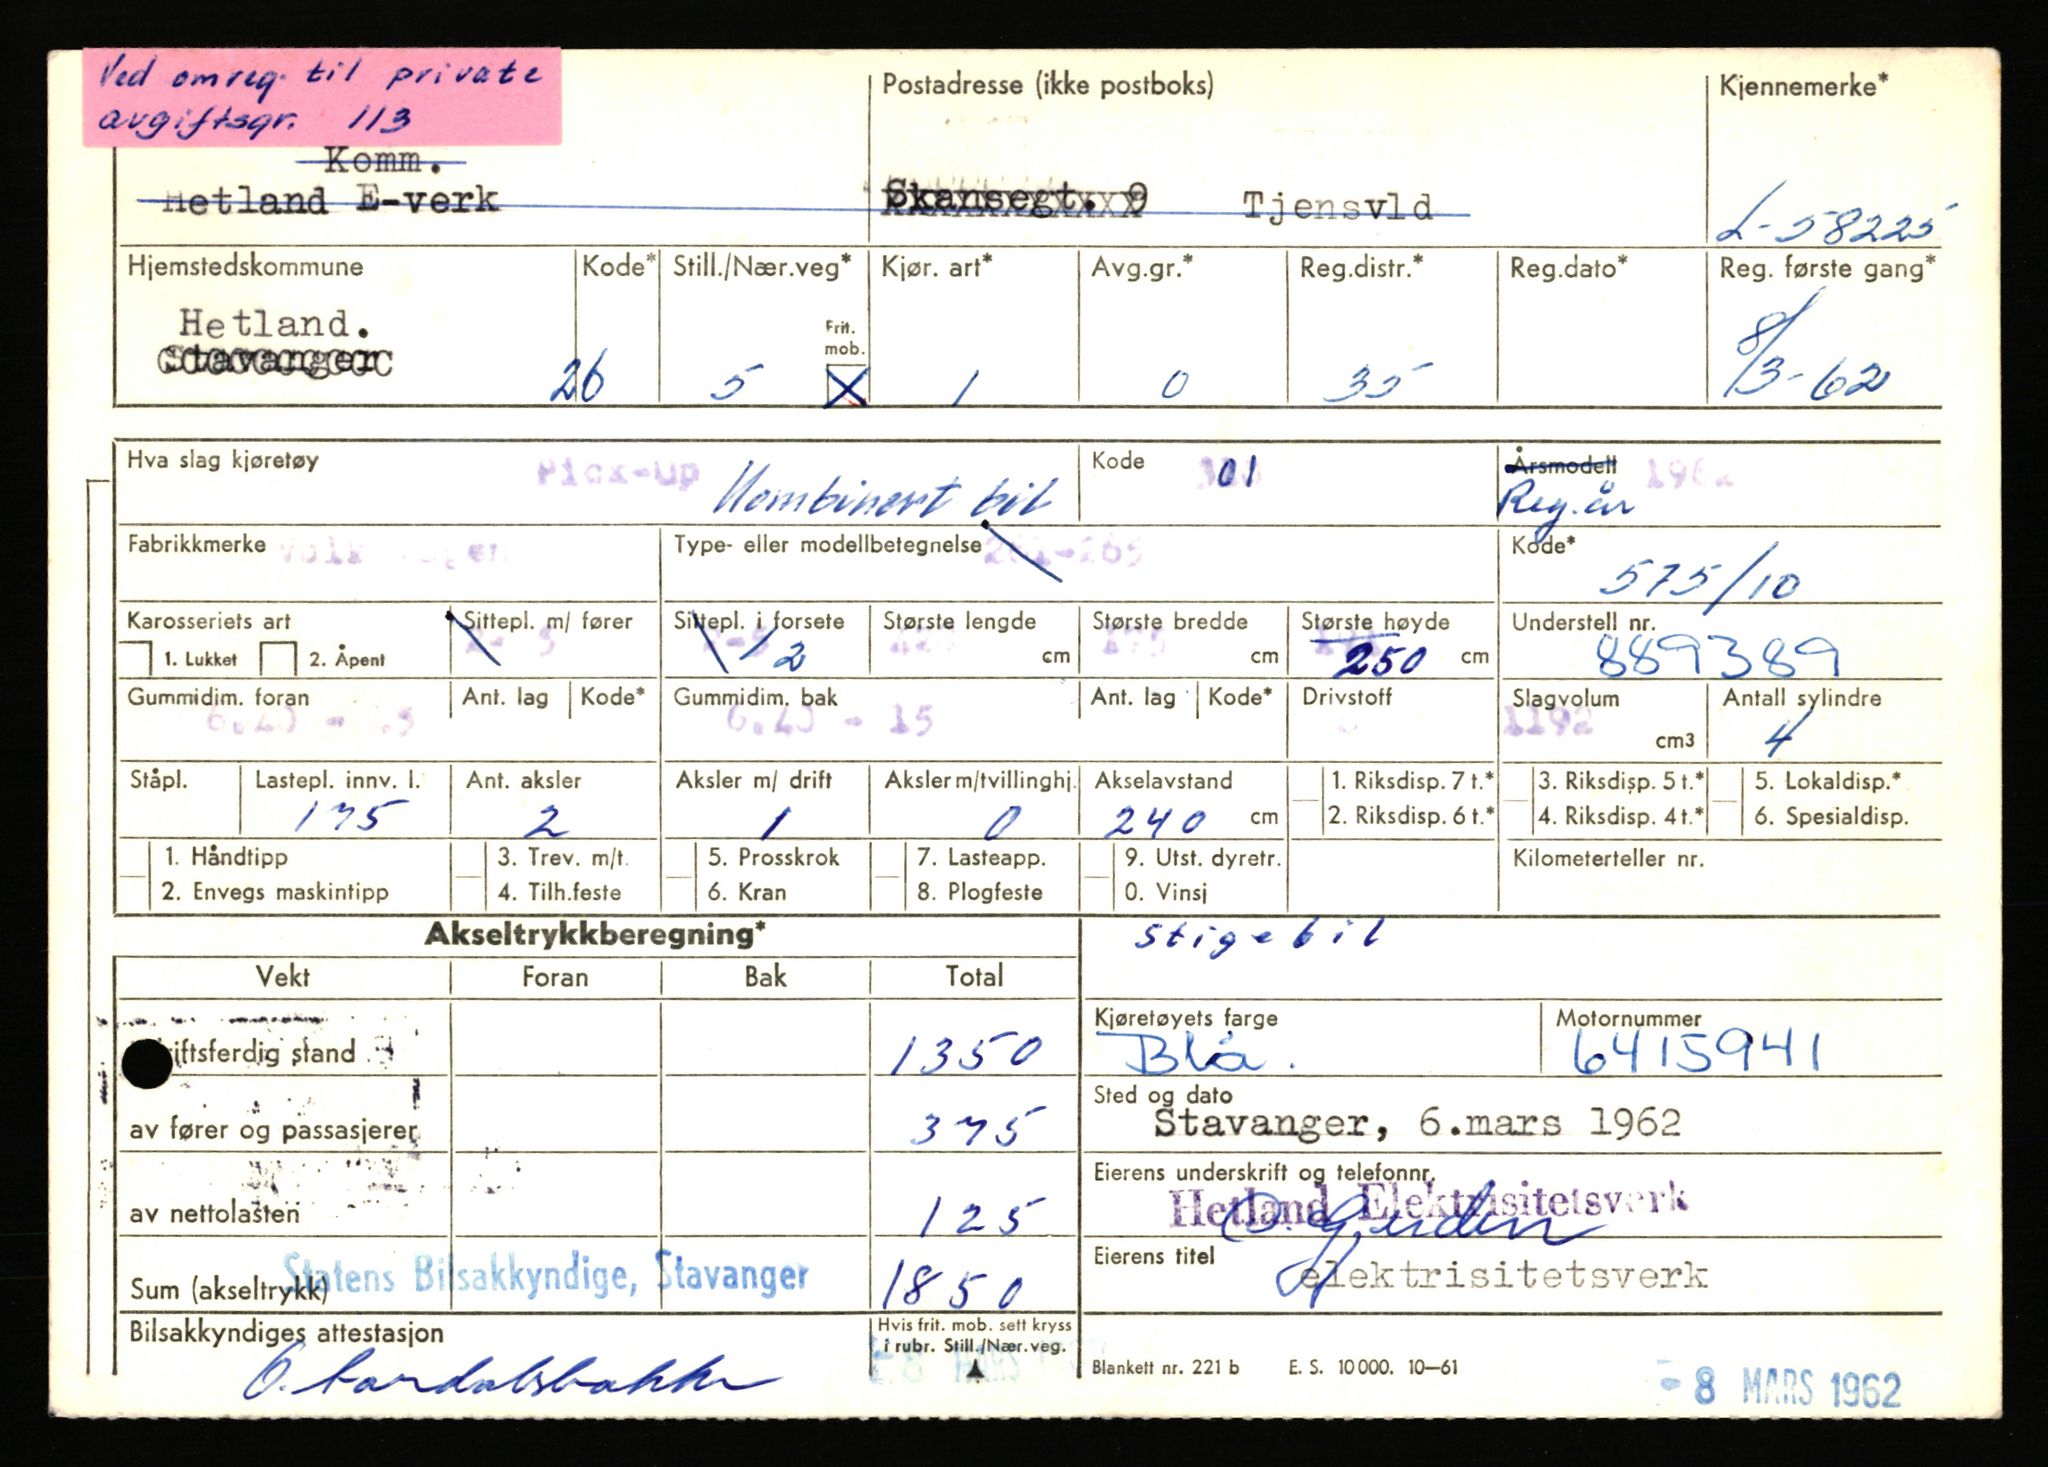 Ved omreg. til private
avgiftsgr. 113
Postadresse (ikke postboks)
Kjennemerke*
Komm.
Hetland E-verk
Skansegt. 9 Tjensvld
L-58225
Hjemstedskommune
Kode*
Still./Nær.veg*
Kjør. art*
Avg.gr.*
Reg.distr.*
Reg.dato*
Reg. første gang*
Hetland.
Stavanger
26
5
Frit.
mob.
1
0
35
8/3-62
Hva slag kjøretøy
Pick-up
Kombinert bil
Kode
01
Årsmodell 1962
Reg.år
Fabrikkmerke
Type- eller modellbetegnelse
261-265
Kode*
575/10
Karosseriets art
1. Lukket 2. Åpent
Sittepl. m/ fører
Sittepl. i forsete
2
Største lengde
cm
Største bredde
175
cm
Største høyde
250 cm
Understell nr.
889389
Gummidim. foran
Ant. lag
Kode*
Gummidim. bak
6.40 - 15
Ant. lag
Kode*
Drivstoff
Slagvolum
1192
cm3
Antall sylindre
4
Ståpl.
Lastepl. innv. l.
175
Ant. aksler
2
Aksler m/ drift
1
Aksler m/tvillinghj.
0
Akselavstand
240 cm
1. Riksdisp. 7 t.*
2. Riksdisp. 6 t.*
3. Riksdisp. 5 t.*
4. Riksdisp. 4 t.*
5. Lokaldisp.*
6. Spesialdisp.
1. Håndtipp
2. Envegs maskintipp
3. Trev. m/t.
4. Tilh.feste
5. Prosskrok
6. Kran
7. Lasteapp.
8. Plogfeste
9. Utst. dyretr.
0. Vinsj
Kilometerteller nr.
Akseltrykkberegning*
stigebil
Vekt
Foran
Bak
Total
iftsferdig stand
1350
av fører og passasjerer
375
av nettolasten
125
Sum (akseltrykk)
1850
Statens Bilsakkyndige, Stavanger
Kjøretøyets farge
Blå.
Motornummer
6415941
Sted og dato
Stavanger, 6.mars 1962
Eierens underskrift og telefonnr.
Hetland Elektrisitetsverk
Eierens titel
elektrisitetsverk
Bilsakkyndiges attestasjon
Hvis frit. mob. sett kryss
i rubr. Still./Nær.veg.
Blankett nr. 221 b E. S. 10 000. 10–61
-8 MARS 1962